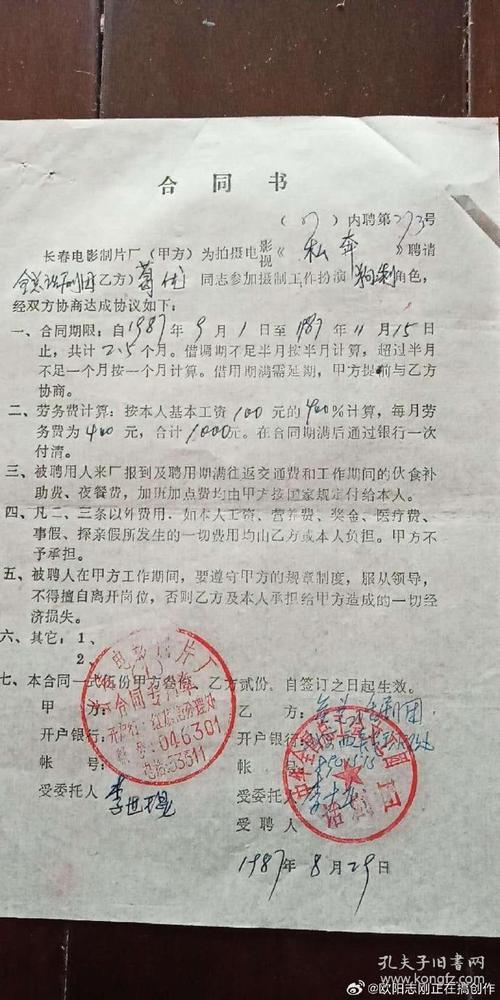 合同书
(87)内聘第273号
长春电影制片厂(甲方)为拍摄电影视《私奔》聘请
全总话剧团(乙方)葛优同志参加摄制工作扮演狗剩角色,
经双方协商达成协议如下:
一、合同期限:自1987年9月1日至1987年11月15日
止,共计2.5个月。借调期不足半月按半月计算,超过半月
不足一个月按一个月计算。借用期满需延期,甲方提前与乙方
协商。
二、劳务费计算:按本人基本工资100元的400%计算,每月劳
务费为400元,合计1000元。在合同期满后通过银行一次
付清。
三、被聘用人来厂报到及聘用期满往返交通费和工作期间的伙食补
助费、夜餐费,加班加点费均由甲方按国家规定付给本人。
四、凡二、三条以外费用,如本人工资、营养费、奖金、医疗费、
事假、探亲假所发生的一切费用均由乙方或本人负担。甲方不
予承担。
五、被聘人在甲方工作期间,要遵守甲方的规章制度,服从领导,
不得擅自离开岗位,否则乙方及本人承担给甲方造成的一切经
济损失。
六、其它:1、
2、
七、本合同一式伍份甲方叁份,乙方贰份,自签订之日起生效。
甲方:
开户银行:
帐号:
受委托人 李世
电影制片厂
合同专用章
开户行:红旗街办理处
帐号:046301
电话:53311
乙方:全总话剧团
开户银行:
帐号:
受委托人
受聘人
中华全国总工会
话剧团
1987年8月29日
孔夫子旧书网
@欧阳志刚正在搞创作